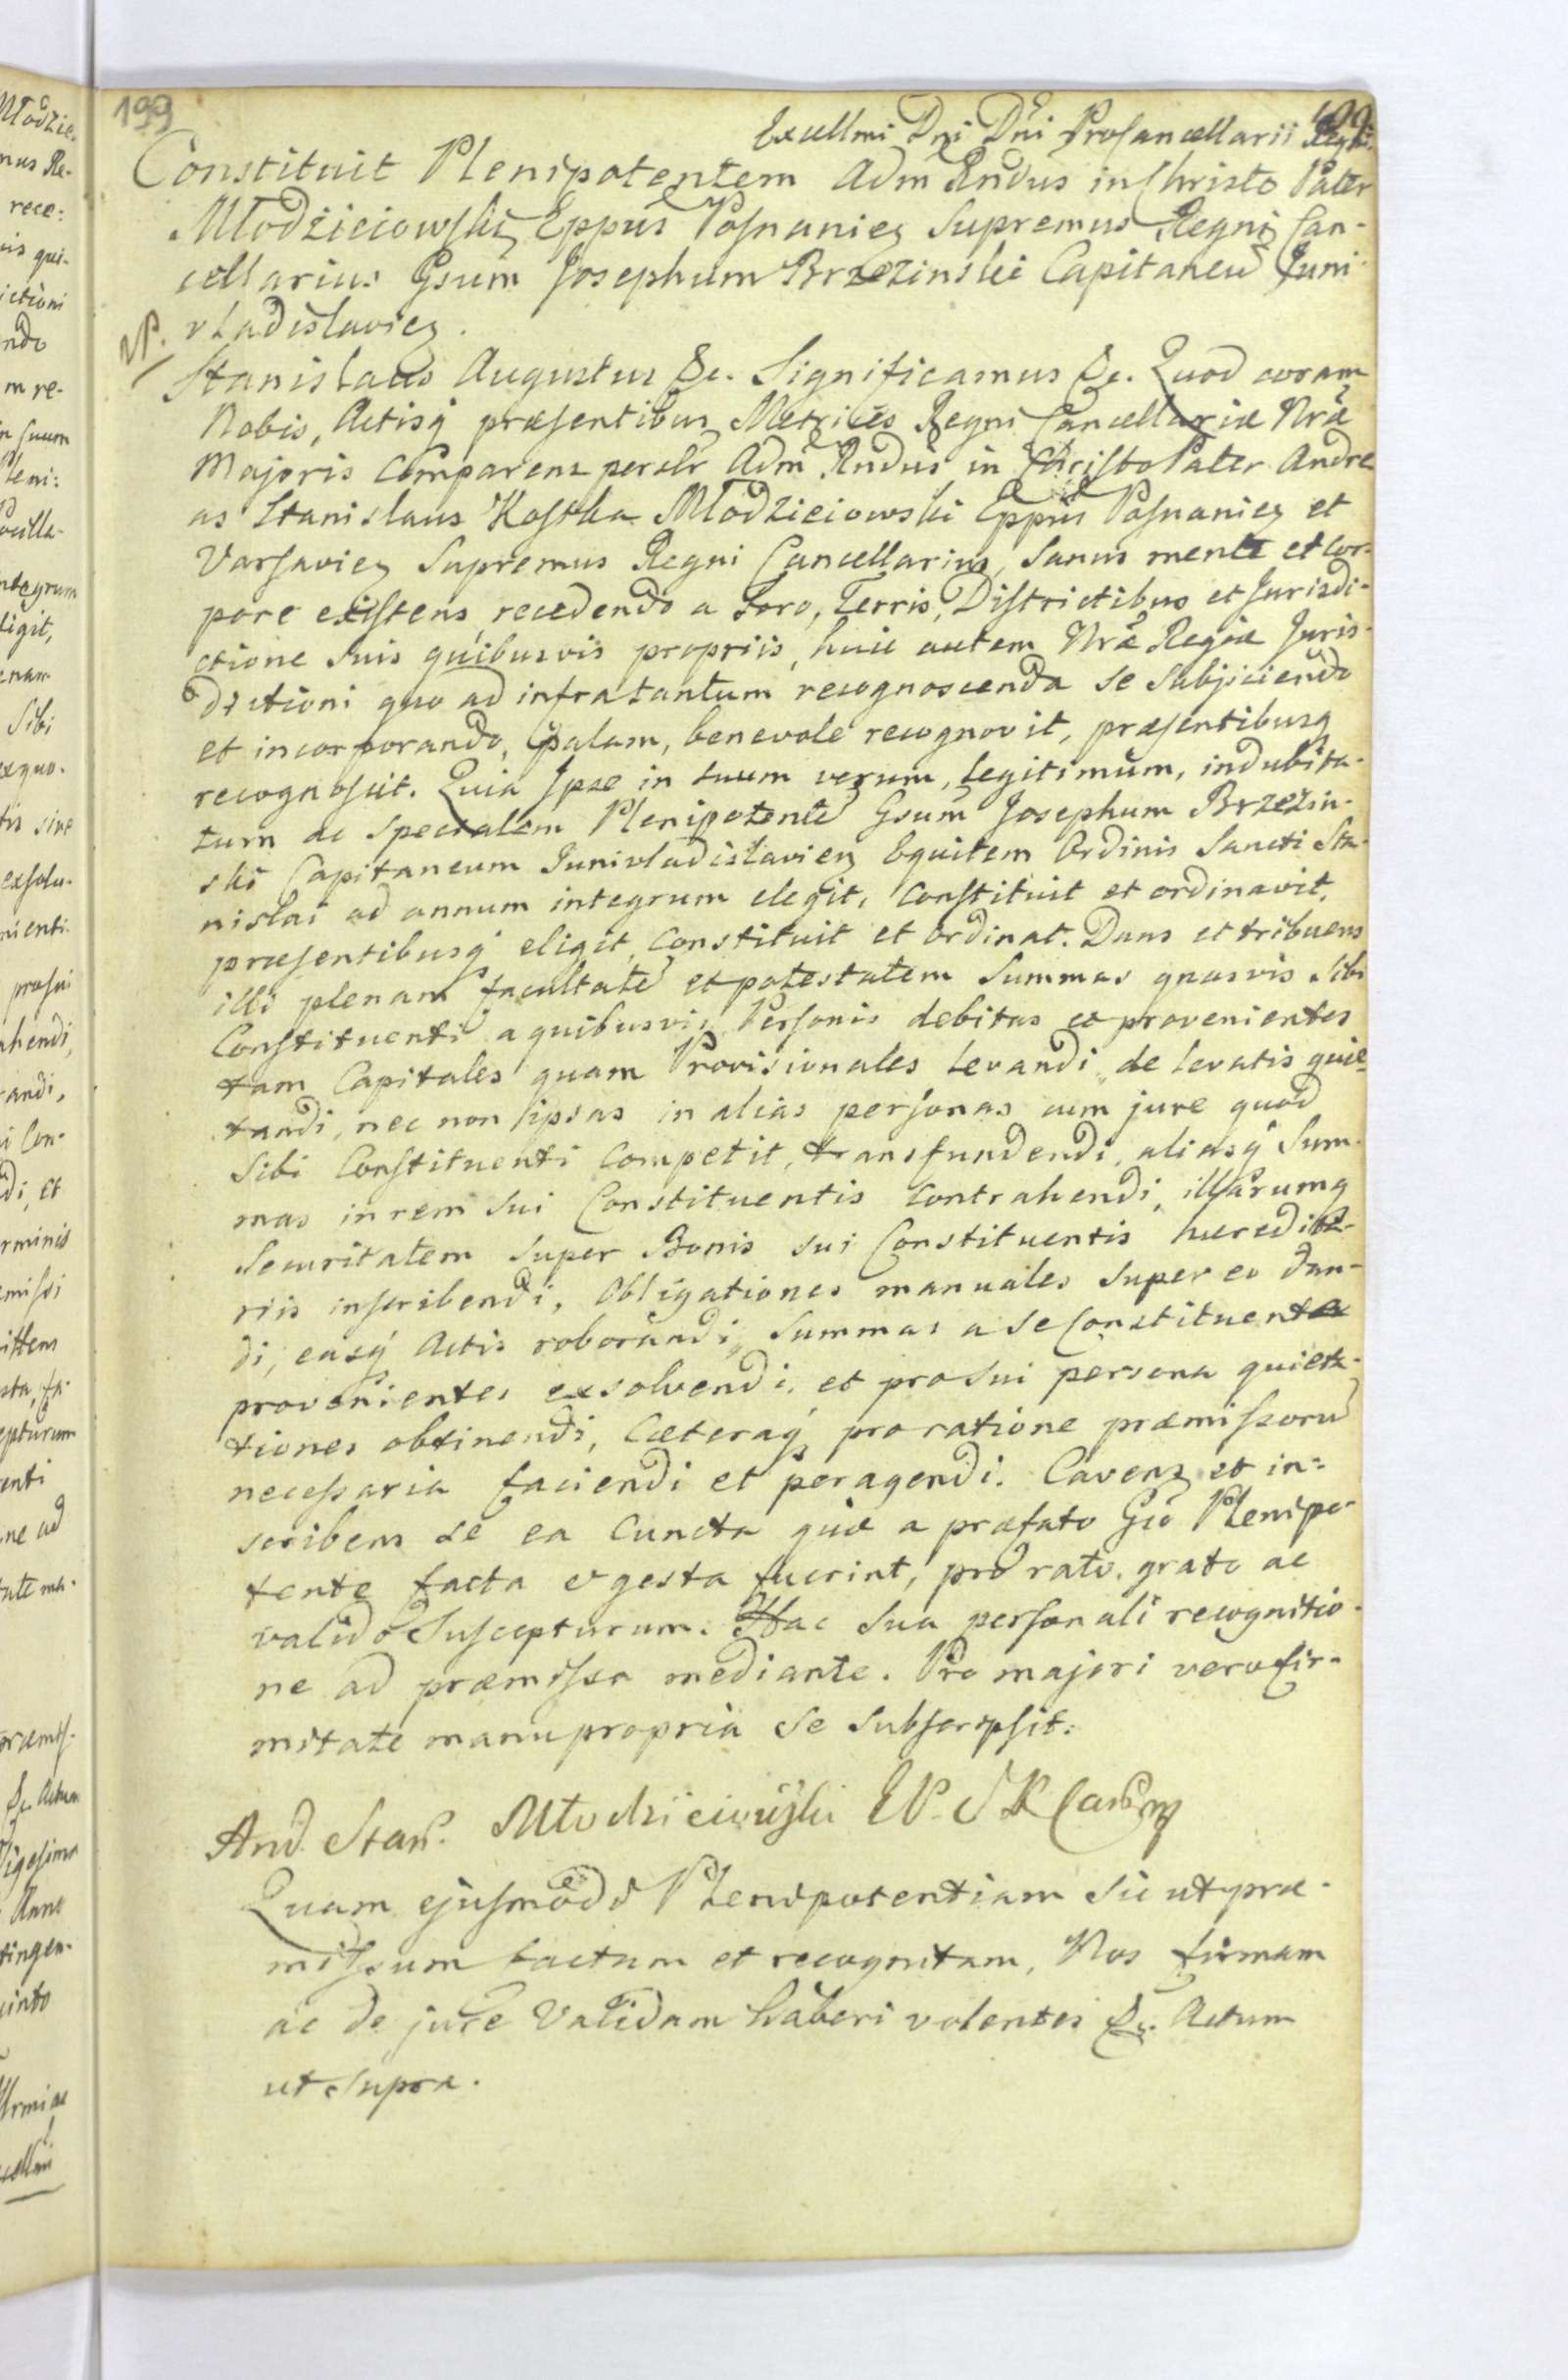 199
199
Excellmi Dni Dni Procancellarii Regni
Constituit Plenipotentem Adm Rndus in Christo Pater
Młodzieiowski Eppus Posnaniens Supremus Regni Can-
cellarius Gsum Josephum Brzezinski Capitaneu Juni
vladislaviens.
Stanislaus Augustus &c. Significamus &c. Quod coram
Nobis, Actisq præsentibus Metrices Regni Cancellariæ Nræ
Majoris Comparens persolr Adm Rndus in Christo Pater Andre
as Stanislaus Kostka Młodzieiowski Eppus Posnaniens et
Varsaviens Supremus Regni Cancellarius, Sanus mente et Cor-
pore existens, recedendo a Foro, Terris, Districtibus et Jurisdi-
ctione suis quibusvis propriis, huic autem Nræ Regiæ Juris-
dictioni quo ad infra tantum recognoscenda se Subjiciendo
et incorporando, palam, benevole recognovit, præsentibusq
recognoscit. Quia Ipse in suum verum, legitimum, indubita-
tum ac specialem Plenipotente Gsum Josephum Brzezin-
ski Capitaneum Junivladislaviens Equitem Ordinis Sancti Sta-
nislai ad annum integrum elegit, Constituit et ordinavit,
præsentibusq eligit, Constituit et ordinat. Dans et tribuens
illi plenam facultate et potestatem Summas quasvis sibi
Constituenti a quibusvis Personis debitas et provenientes
tam Capitales quam Provisionales levandi, de levatis quie-
tandi, nec non ipsas in alias personas cum jure quod
Sibi Constituenti Competit, transfundendi, aliasq Sum-
mas in rem sui Constituentis Contrahendi, illarumq
Securitatem Super Bonis sui Constituentis hæredita-
riis inscribendi, Obligationes manuales Super eo dan-
di, easq Actis roborandi, Summas a se Constituente
provenientes exsolvendi, et pro sui persona quieta-
tiones obtinendi, Cæteraq pro ratione præmissoru
necessaria faciendi et peragendi. Cavens et in-
scribens se ea Cuncta quæ a præfato Gso Plenipo-
tente facta et gesta fuerint, pro rato, grato ac
valido Suscepturum. Hac sua personali recognitio-
ne ad præmissa mediante. Pro majori vero fir-
mitate manu propria se Subscripsit.
And Stan. Młodzieiowski EP. S R Canc
Quam ejusmodi Plenipotentiam sic ut præ-
missum factam et recognitam, Nos firmam
ac de jure Validam haberi volentes &c. Actum
ut Supra.